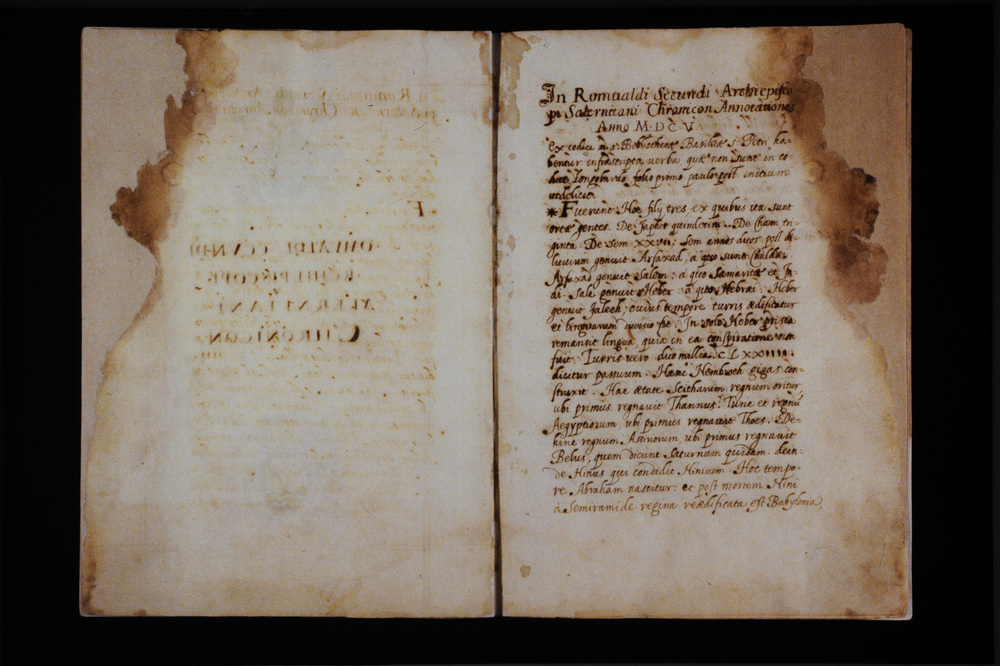 In Romualdi Secundi Archiepisco-
pi Salernitani Chronicon Annotationes
Anno M.DC V.
Ex codice Bibliothecæ Basilicæ S. Petri ha-
bentur infrascripta verba quæ non sunt in co-
dice Longobardo folio primo paulo post initium
videlicet.
* Fuerunt Noe filij tres, ex quibus ita sunt
ortæ gentes. De Japhet quindecim. De Cham tri-
ginta. De Sem XXVII. Sem annos duos post di-
luvium genuit Arfaxad, a quo sunt Chaldæi
Arfaxad genuit Salem: a quo Samaritæ et In-
di. Sale genuit Heber: a quo Hebræi. Heber
genuit Faleck, cuius tempore turris ædificatur
et linguarum divisio fit. In solo Heber prisca
remansit lingua, quia in ea conspiratione non
fuit. Turris vero duo millia CLXXIIII
dicitur passuum. Hanc Nembroth gigas con-
struxit. Hac ætate Scitharum regnum oritur
ubi primus regnavit Thannus. Tunc et regnum
Aegyptiorum ubi primus regnavit Thoes. De-
hinc regnum Assiriorum, ubi primus regnavit
Belus, quem dicunt Saturnum quidam: dein-
de Ninus qui condidit Ninivem. Hoc tempo-
re Abraham nascitur: et post mortem Nini
à Semiramide regina reædificata est Babylonia,